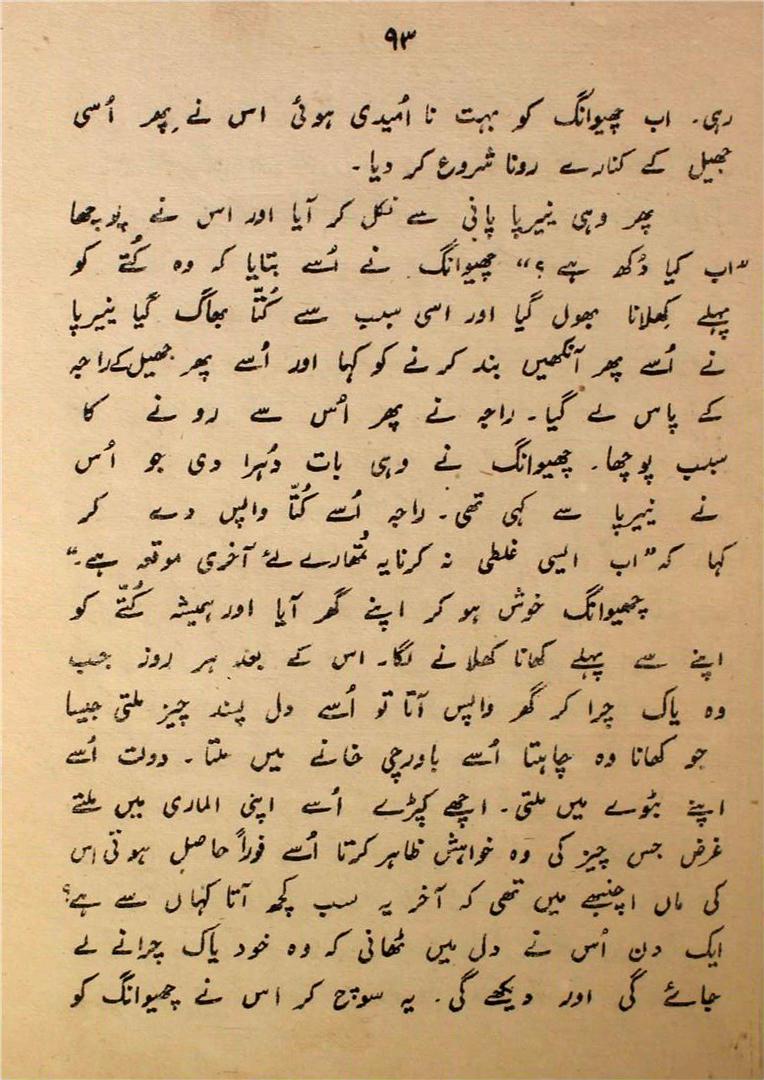 ۹۳
رہی۔ اب چھیوانگ کو بہت نا اُمیدی ہوئی اس نے پھر اُسی
جھیل کے کنارے رونا شروع کر دیا۔
پھر وہی نیرپا پانی سے نکل کر آیا اور اس نے پوچھا
"اب کیا دُکھ ہے؟" چھیوانگ نے اُسے بتایا کہ وہ کُتے کو
پہلے کِھلانا بھول گیا اور اسی سبب سے کُتّا بھاگ گیا نیرپا
نے اُسے پھر آنکھیں بند کرنے کو کہا اور اُسے پھر جھیل کے راجہ
کے پاس لے گیا۔ راجہ نے پھر اُس سے رونے کا
سبب پوچھا۔ چھیوانگ نے وہی بات دُہرا دی جو اُس
نے نیرپا سے کہی تھی۔ راجہ اُسے کُتّا واپس دے کر
کہا کہ "اب ایسی غلطی نہ کرنا یہ تُمھارے لئے آخری موقعہ ہے۔"
چھیوانگ خوش ہو کر اپنے گھر آیا اور ہمیشہ کُتّے کو
اپنے سے پہلے کھانا کھلانے لگا۔ اس کے بعد ہر روز جب
وہ یاک چرا کر گھر واپس آتا تو اُسے دل پسند چیز ملتی جیسا
جو کھانا وہ چاہتا اُسے باورچی خانے میں ملتا۔ دولت اُسے
اپنے بٹوے میں ملتی۔ اچھے کپڑے اُسے اپنی الماری میں ملتے
غرض جس چیز کی وہ خواہش ظاہر کرتا اُسے فوراً حاصل ہوتی اس
کی ماں اچنبھے میں تھی کہ آخر یہ سب کچھ آتا کہاں سے ہے؟
ایک دن اُس نے دل میں ٹھانی کہ وہ خود یاک چرانے لے
جائے گی اور دیکھے گی۔ یہ سوچ کر اس نے چھیوانگ کو